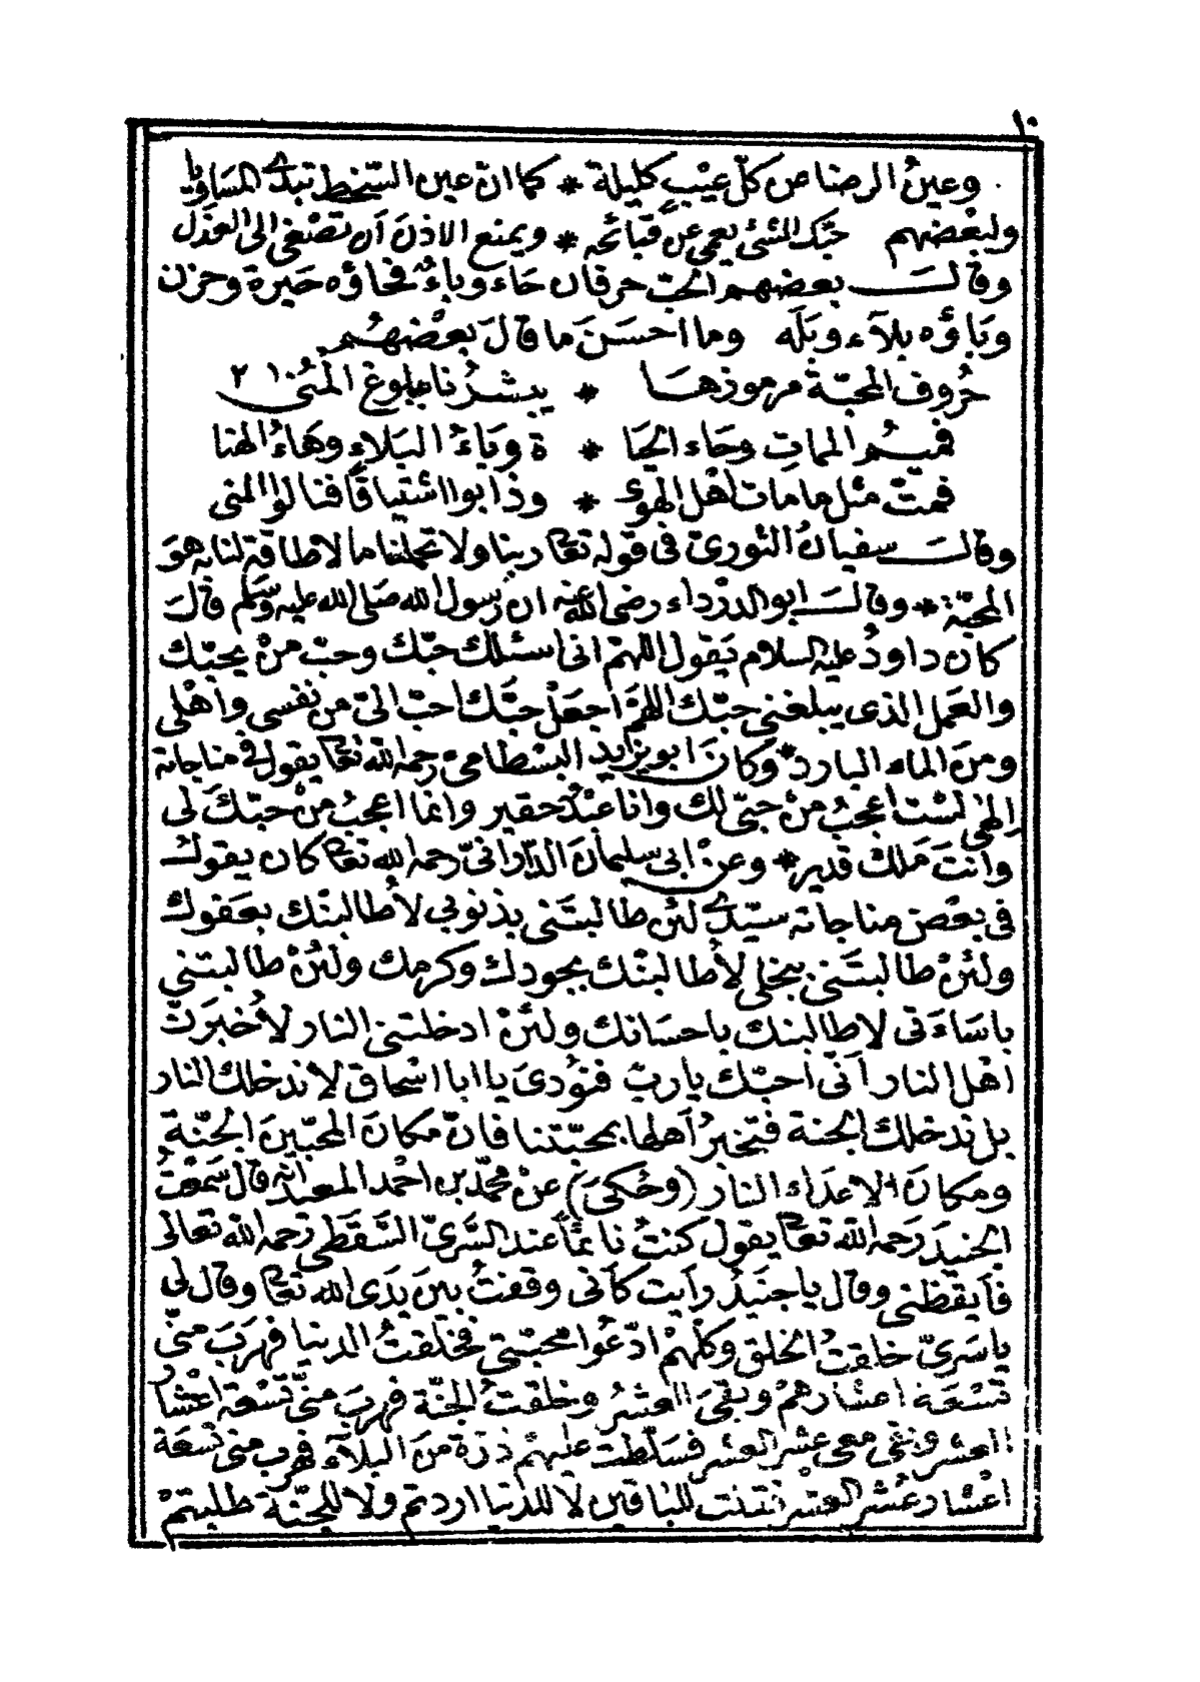 ١٠
وعينُ الرضا عن كلّ عيْبٍ كليلة * كما انّ عين السّخط تبدى المساويا
ولبعْضهم حبّك الشئ يعمى عن قبائحه * ويمنع الاذنَ اَن تصْغى الى العذل
وقالــ بعضهم الحبّ حرفان حَاء وباءٌ فحاؤه حَيرة وحزن
وبَاؤه بلآء وبَلَه وما احسَنَ ما قالَ بعْضهُم
حُروف المحبّة مرموزهَا * يبشرُنا ببلوغ المُنى ٢١
فميـم المماتِ وحَاء الحيَا * ة وبَاءُ البَلاءِ وهَاءُ الهنا
فمتّ مثل ما مات اهْل الهوى * وذابوا اشتياقًا فنالوا المنى
وقالــ سفيانُ الثورىّ فى قوله تعا ربنا ولا تحمّلنا ما لا طاقة لنا به هوَ
المحبّة * وقالــ ابو الدرْداء رضى الله عنه ان رَسول الله صَلى الله عليه وسَلم قالَ
كان داودُ عليه السلام يَقول اللهمّ انى اسئلك حبّك وحبّ منْ يحبّك
والعَمل الذى يبلغنى حبّك اللهمّ اجعَلْ حبَّك احبّ الىّ من نفسى واهْلى
ومنَ الماء البارد * وَكانَ ابو يزيد البسْطامىْ رحمه الله تعا يقول فى مناجاته
الهى لسْت اعجبُ منْ حبّى لك وانا عبْدٌ حقير وانما اعجبُ منْ حبّكَ لى
وانتَ مَلك قدير * وعنْ ابى سليمانَ الدّارانىّ رحمه الله تعا كان يقول
فى بعْض مناجاته سيّدى لئن طالبتَنى بذنوبى لأطالبنّك بعَفوك
ولئنْ طالبتَنى ببخلى لأطالبنّك بجودك وكرمك ولئنْ طالبتنى
باسَاءَتى لاطالبنك باحسَانك ولئنْ ادخلتنى النار لأخبرَنّ
اهْل النار اَنّى احبّك يا ربّ فنُودىَ يا ابا اسْحاق لا ندخلك النار
بل ندخلك الجنة فتخبرُ اَهلها بمحبّتنا فانّ مكانَ المحبّينَ الجنّة
ومكانَ الاعدَاء النار (وحُكىَ) عنْ محمّد بن احْمد المعبد انّه قال سَمعْتُ
الجنيدَ رَحمه الله تعا يقول كنتُ نائمًا عند السَّرىّ السَّقَطى رَحمه الله تعالى
فأيقظنى وقال يا جنَيْدُ رأيت كأنى وقفتُ بين يَدَى الله تعا وقال لى
يا سَرىّ خلقتُ الخلق وكلّهمْ ادّعُوا محبّتى فخلقتُ الدنيا فهَربَ منّى
تسْعَة اعشارهمْ وبقىَ العشرُ وخلقتُ الجنّة فهربَ منّى تسْعَة اعْشار
العشر وبقى معى عشر العشر فسَلّطت عليهمْ ذرّة منَ البلآء فهرب منى تسْعَة
اعْشار عُشر العشر فقلت للباقين لا للدنيا اردتم ولا للجنّة طلبتمْ